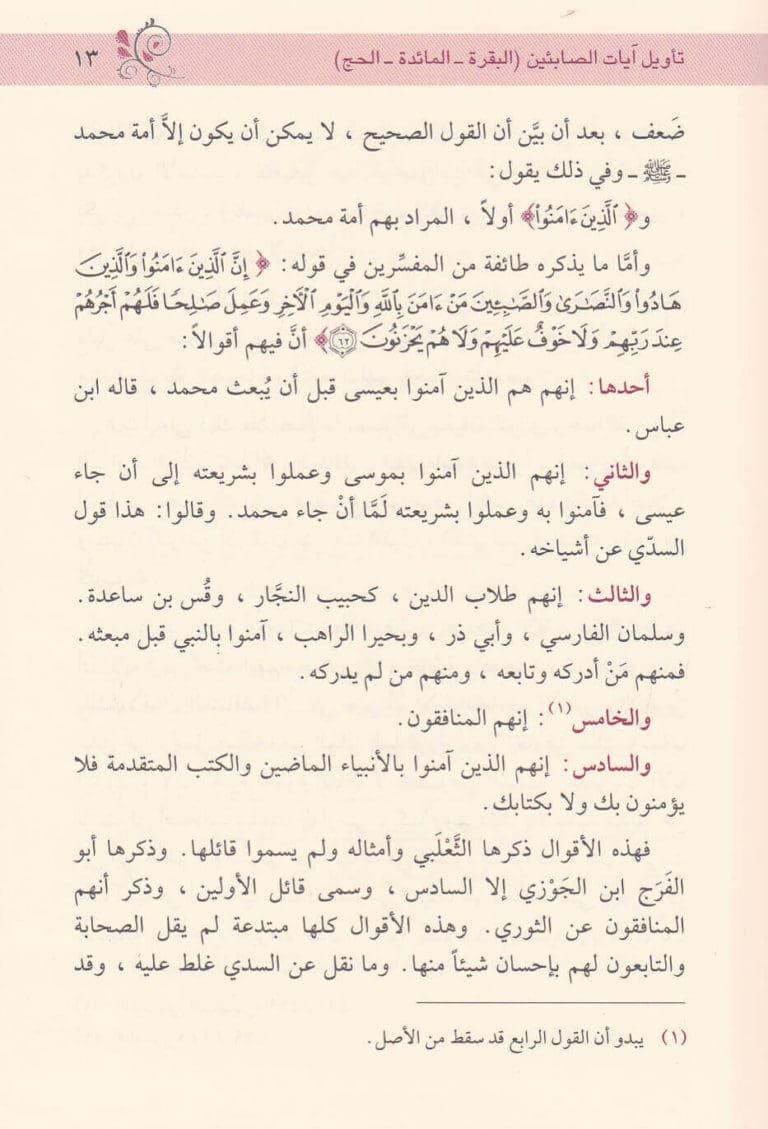 تأويل آيات الصابئين (البقرة - المائدة - الحج)
١٣
ضَعف ، بعد أن بيَّن أن القول الصحيح ، لا يمكن أن يكون إلاَّ أمة محمد
- ﷺ - وفي ذلك يقول:
و﴿ ٱلَّذِينَ ءَامَنُوا۟﴾ أولاً ، المراد بهم أمة محمد.
وأمَّا ما يذكره طائفة من المفسِّرين في قوله: ﴿ إِنَّ ٱلَّذِينَ ءَامَنُوا۟ وَٱلَّذِينَ
هَادُوا۟ وَٱلنَّصَٰرَىٰ وَٱلصَّٰبِـِٔينَ مَنْ ءَامَنَ بِٱللَّهِ وَٱلْيَوْمِ ٱلْءَاخِرِ وَعَمِلَ صَٰلِحًا فَلَهُمْ أَجْرُهُمْ
عِندَ رَبِّهِمْ وَلَا خَوْفٌ عَلَيْهِمْ وَلَا هُمْ يَحْزَنُونَ ٦٢﴾ أنَّ فيهم أقوالاً:
أحدها: إنهم هم الذين آمنوا بعيسى قبل أن يُبعث محمد ، قاله ابن
عباس.
والثاني: إنهم الذين آمنوا بموسى وعملوا بشريعته إلى أن جاء
عيسى ، فآمنوا به وعملوا بشريعته لَمَّا أنْ جاء محمد. وقالوا: هذا قول
السدّي عن أشياخه.
والثالث: إنهم طلاب الدين ، كحبيب النجَّار ، وقُس بن ساعدة.
وسلمان الفارسي ، وأبي ذر ، وبحيرا الراهب ، آمنوا بالنبي قبل مبعثه.
فمنهم مَنْ أدركه وتابعه ، ومنهم من لم يدركه.
والخامس(١): إنهم المنافقون.
والسادس: إنهم الذين آمنوا بالأنبياء الماضين والكتب المتقدمة فلا
يؤمنون بك ولا بكتابك.
فهذه الأقوال ذكرها الثَّعْلَبي وأمثاله ولم يسموا قائلها. وذكرها أبو
الفَرَج ابن الجَوْزي إلا السادس ، وسمى قائل الأولين ، وذكر أنهم
المنافقون عن الثوري. وهذه الأقوال كلها مبتدعة لم يقل الصحابة
والتابعون لهم بإحسان شيئاً منها. وما نقل عن السدي غلط عليه ، وقد
(١) يبدو أن القول الرابع قد سقط من الأصل.